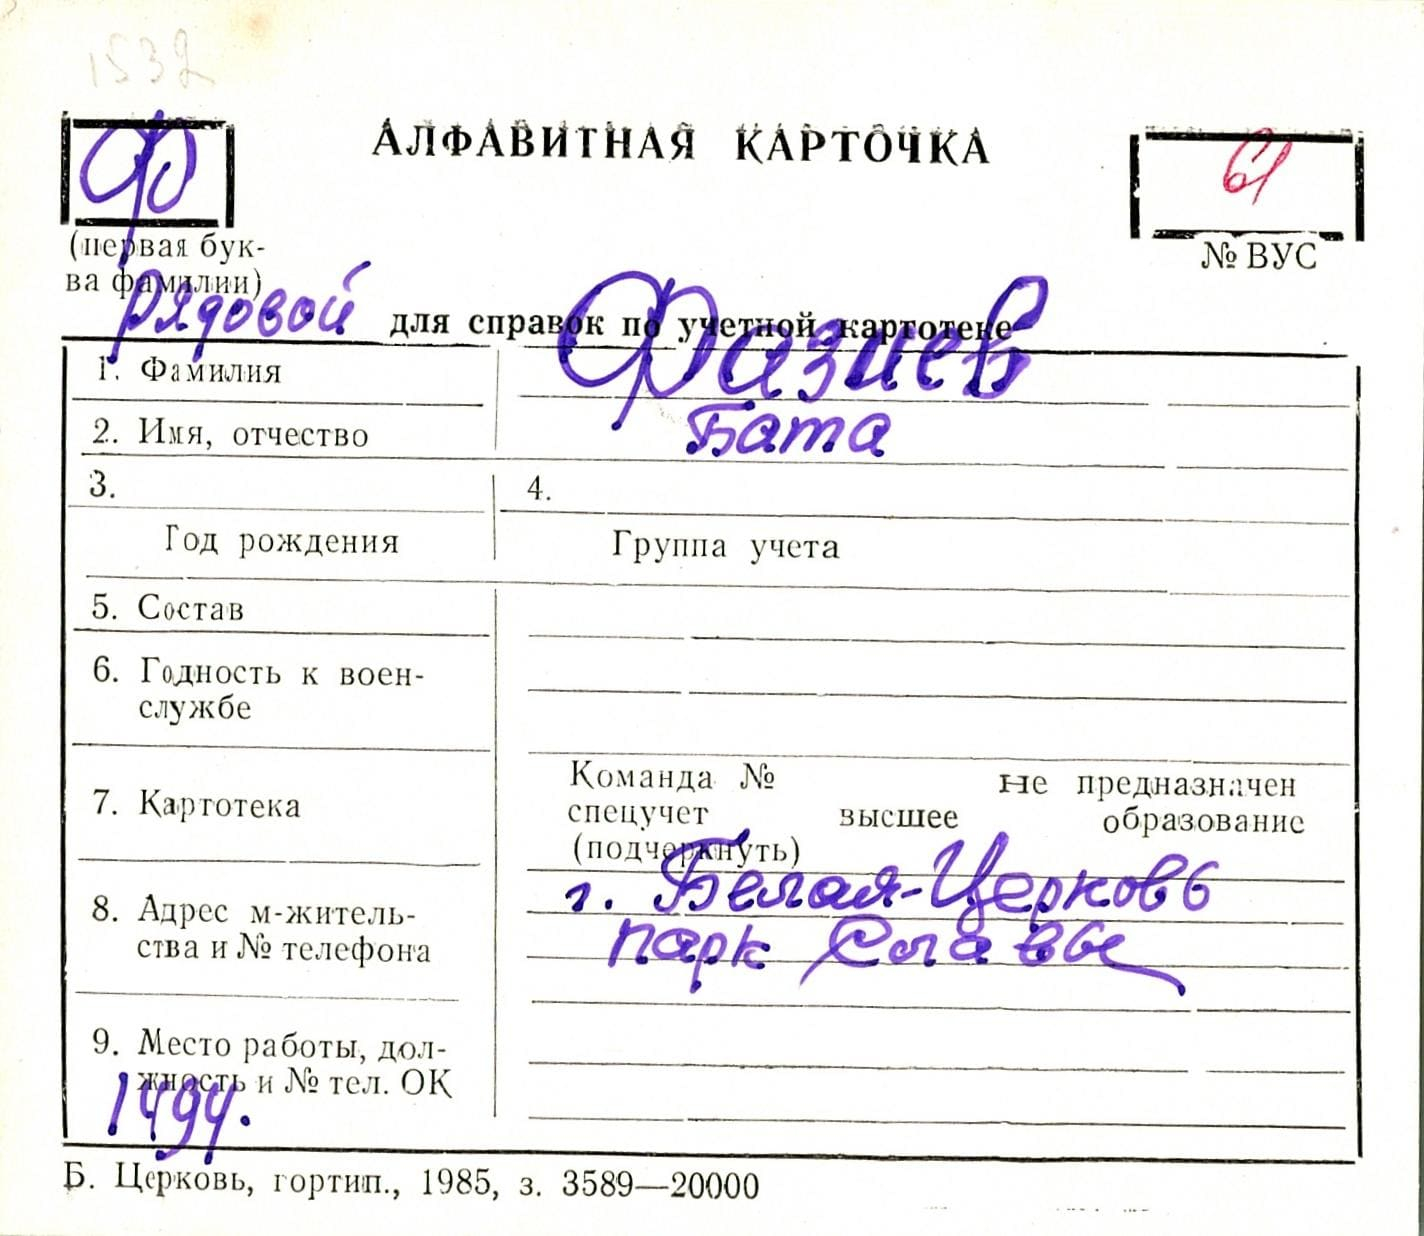 1532
Ф
АЛФАВИТНАЯ КАРТОЧКА
61
(первая бук-
ва фамилии)
№ ВУС
рядовой для справок по учетной картотеке
1. Фамилия Фазиев
2. Имя, отчество Бата
3. 4.
Год рождения Группа учета
5. Состав
6. Годность к воен-
службе
7. Картотека
Команда № не предназначен
спецучет высшее образование
(подчеркнуть)
8. Адрес м-житель-
ства и № телефона
г. Белая-Церковь
парк Славы
9. Место работы, дол-
жность и № тел. ОК
1494.
Б. Церковь, гортип., 1985, з. 3589—20000